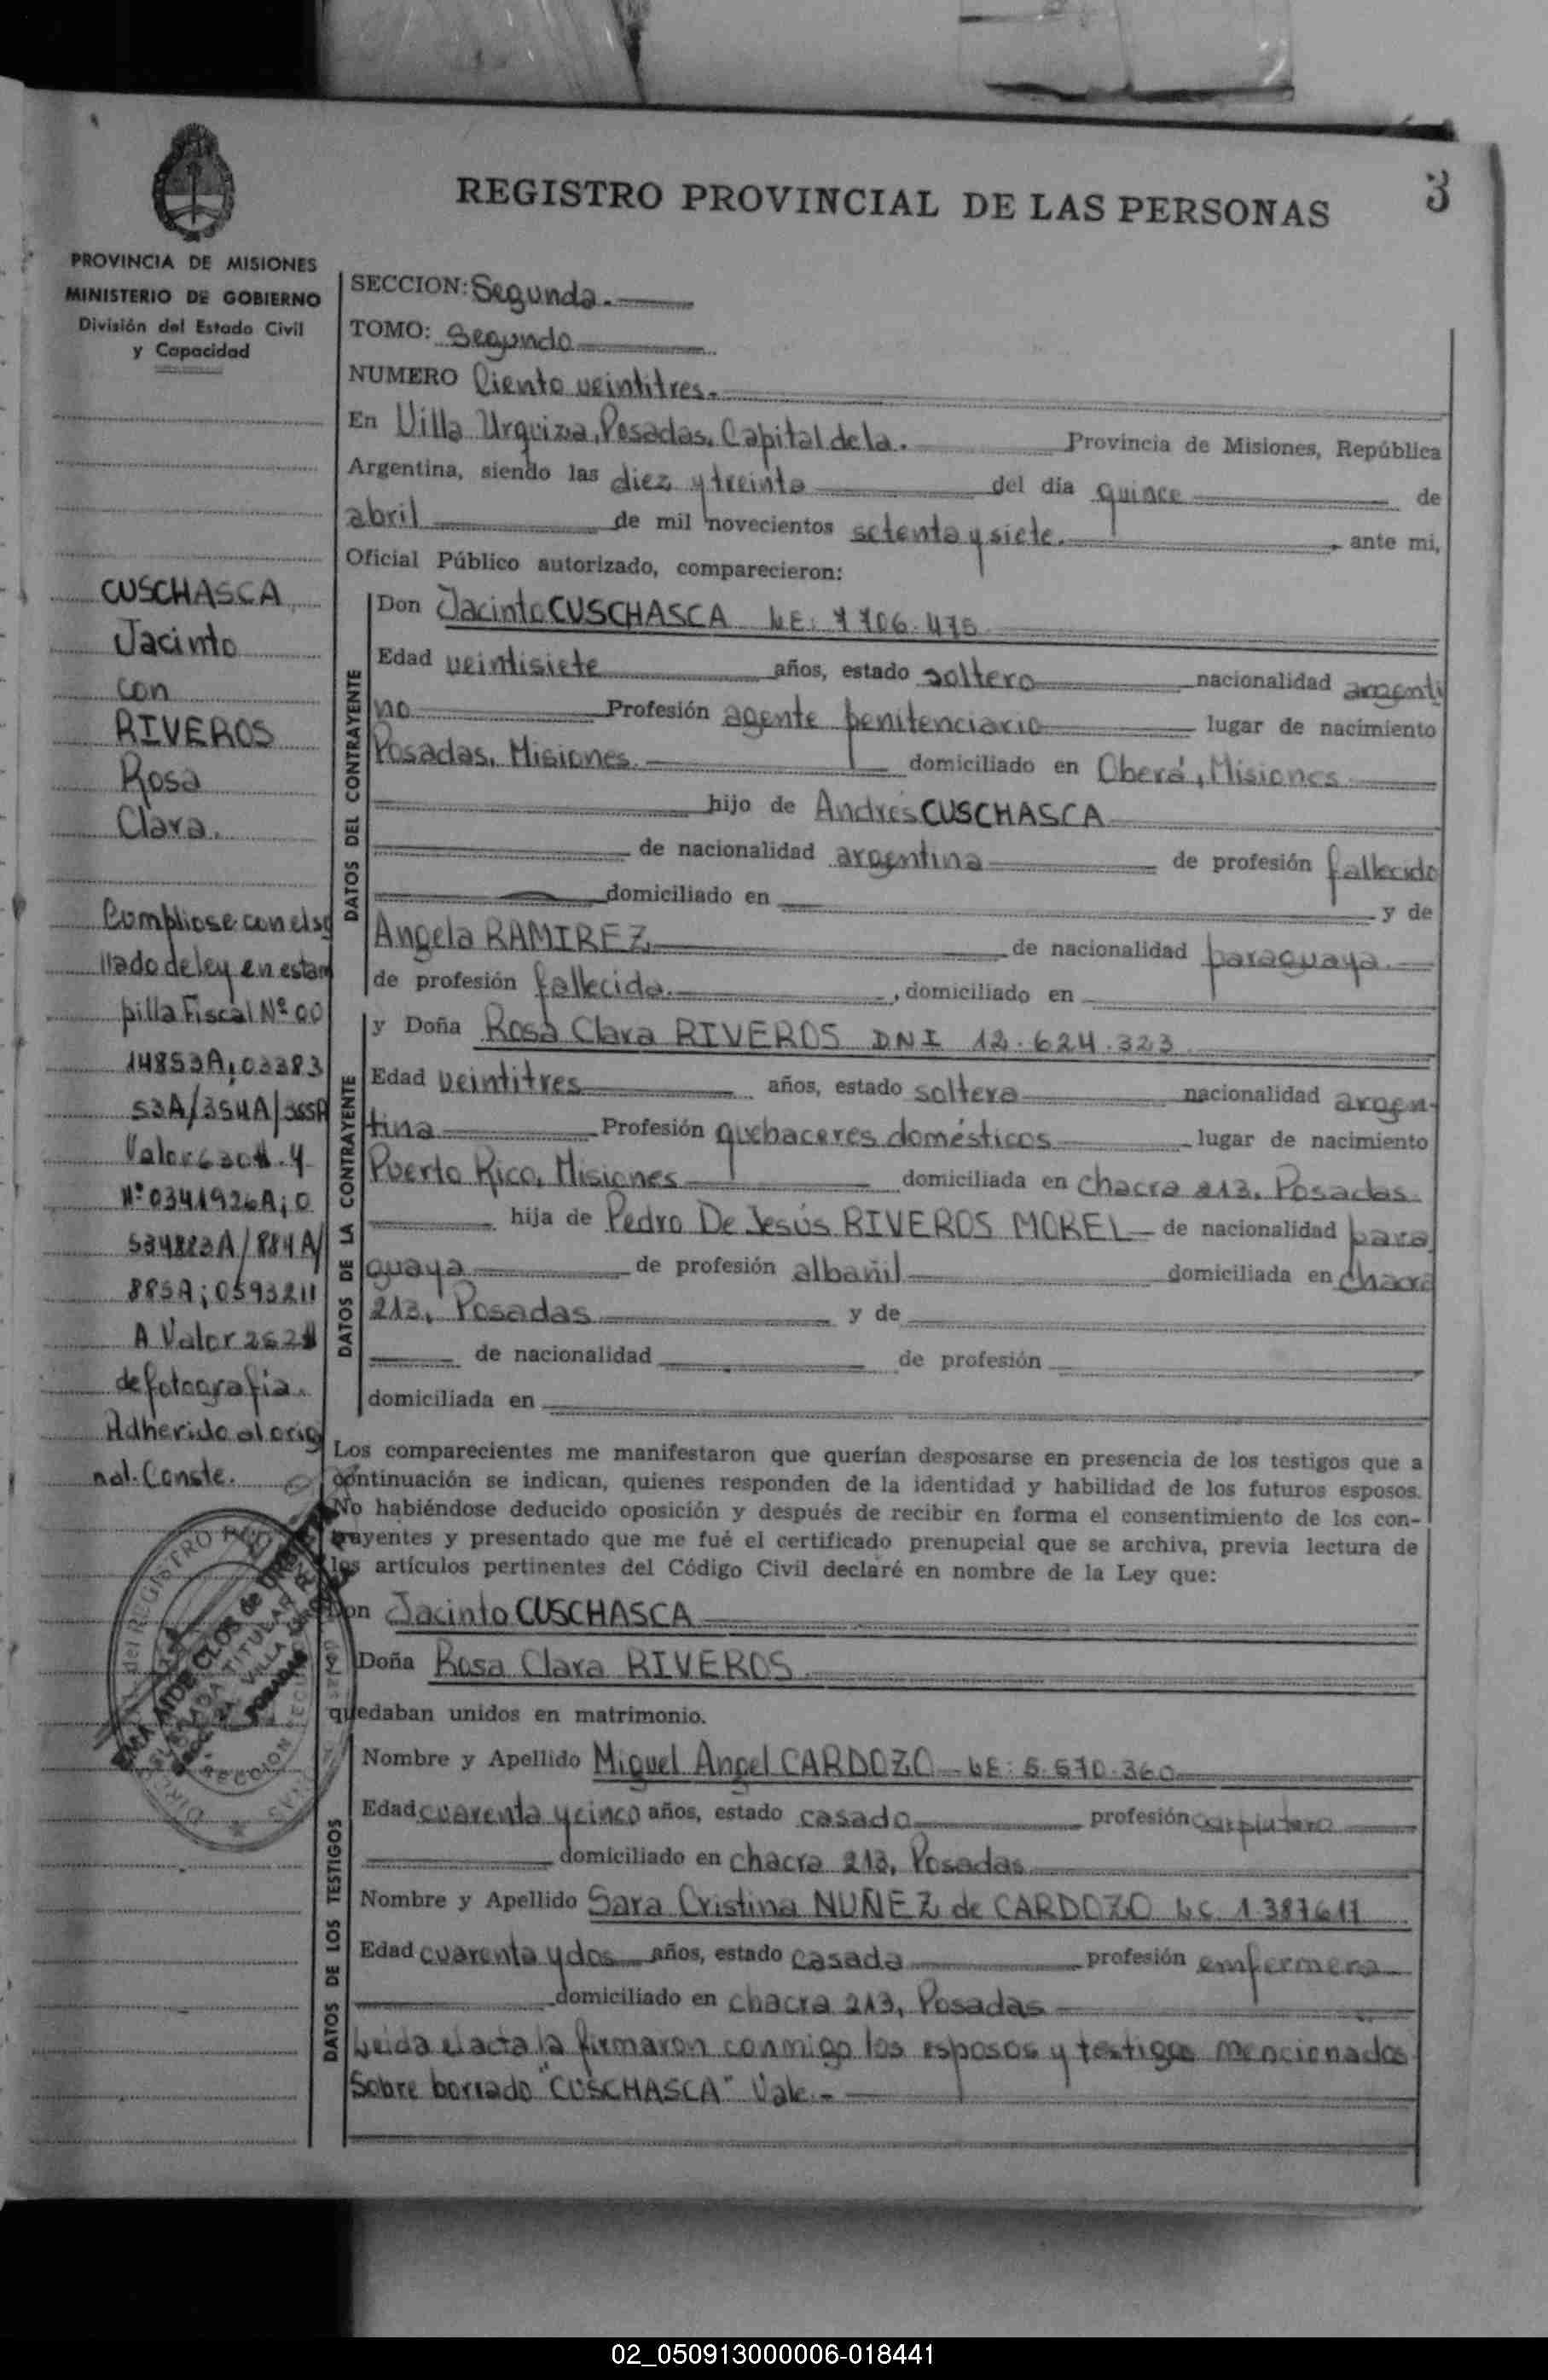 REGISTRO PROVINCIAL DE LAS PERSONAS
3
PROVINCIA DE MISIONES
MINISTERIO DE GOBIERNO
División del Estado Civil
y Capacidad
CUSCHASCA
Jacinto
con
RIVEROS
Rosa
Clara.
Cumpliose con el se
llado de ley en estam
pilla Fiscal Nº 00
14853A; 03383
53A/354A/355A
Valor
Nº 0341926A; 0
534883A/884A/
885A; 0593211
A Valor
de fotografia.
Adherido al orig
nal. Conste.
SECCION: Segunda.
TOMO: Segundo
NUMERO Ciento veintitres.
En Villa Urquiza, Posadas, Capital de la. Provincia de Misiones, República
Argentina, siendo las diez y treinta del día quince de
abril de mil novecientos setenta y siete. ante mi,
Oficial Público autorizado, comparecieron:
DATOS DEL CONTRAYENTE
Don Jacinto CUSCHASCA LE: 7706.475
Edad veintisiete años, estado soltero nacionalidad argenti
no Profesión agente penitenciario lugar de nacimiento
Posadas, Misiones. domiciliado en Oberá, Misiones
hijo de Andrés CUSCHASCA
de nacionalidad argentina de profesión fallecido
domiciliado en y de
Angela RAMIREZ de nacionalidad paraguaya.
de profesión fallecida. , domiciliado en
DATOS DE LA CONTRAYENTE
y Doña Rosa Clara RIVEROS DNI 12.624.323
Edad veintitres años, estado soltera nacionalidad argen-
tina Profesión quehaceres domésticos lugar de nacimiento
Puerto Rico, Misiones domiciliada en chacra 213, Posadas
hija de Pedro De Jesús RIVEROS MOREL de nacionalidad para
guaya de profesión albañil domiciliada en chacra
213, Posadas y de
de nacionalidad de profesión
domiciliada en
Los comparecientes me manifestaron que querían desposarse en presencia de los testigos que a
continuación se indican, quienes responden de la identidad y habilidad de los futuros esposos.
No habiéndose deducido oposición y después de recibir en forma el consentimiento de los con-
trayentes y presentado que me fué el certificado prenupcial que se archiva, previa lectura de
los artículos pertinentes del Código Civil declaré en nombre de la Ley que:
Don Jacinto CUSCHASCA
y Doña Rosa Clara RIVEROS
quedaban unidos en matrimonio.
DATOS DE LOS TESTIGOS
Nombre y Apellido Miguel Angel CARDOZO LE: 5.570.360
Edad cuarenta y cinco años, estado casado profesión carpintero
domiciliado en chacra 213, Posadas
Nombre y Apellido Sara Cristina NUÑEZ de CARDOZO LC 1.387611
Edad cuarenta y dos años, estado casada profesión emfermera
domiciliado en chacra 213, Posadas
Leida el acta la firmaron conmigo los esposos y testigos mencionados
Sobre borrado "CUSCHASCA" Vale.-
02_050913000006-018441